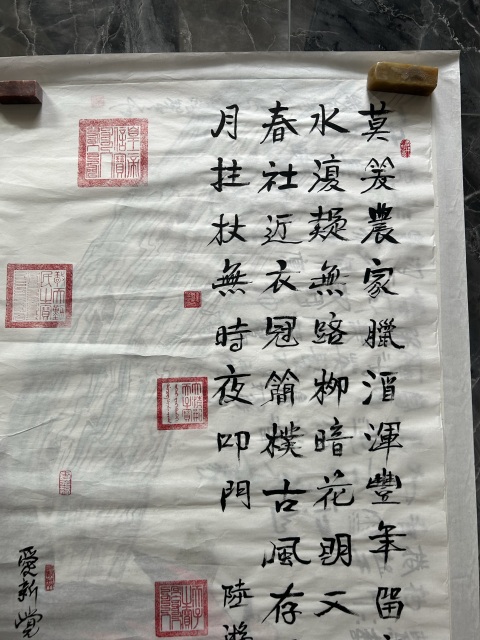 莫笑農家臘酒渾豐年留
水復疑無路柳暗花明又
春社近衣冠簡樸古風存
月拄杖無時夜叩門 陸游
愛新覺